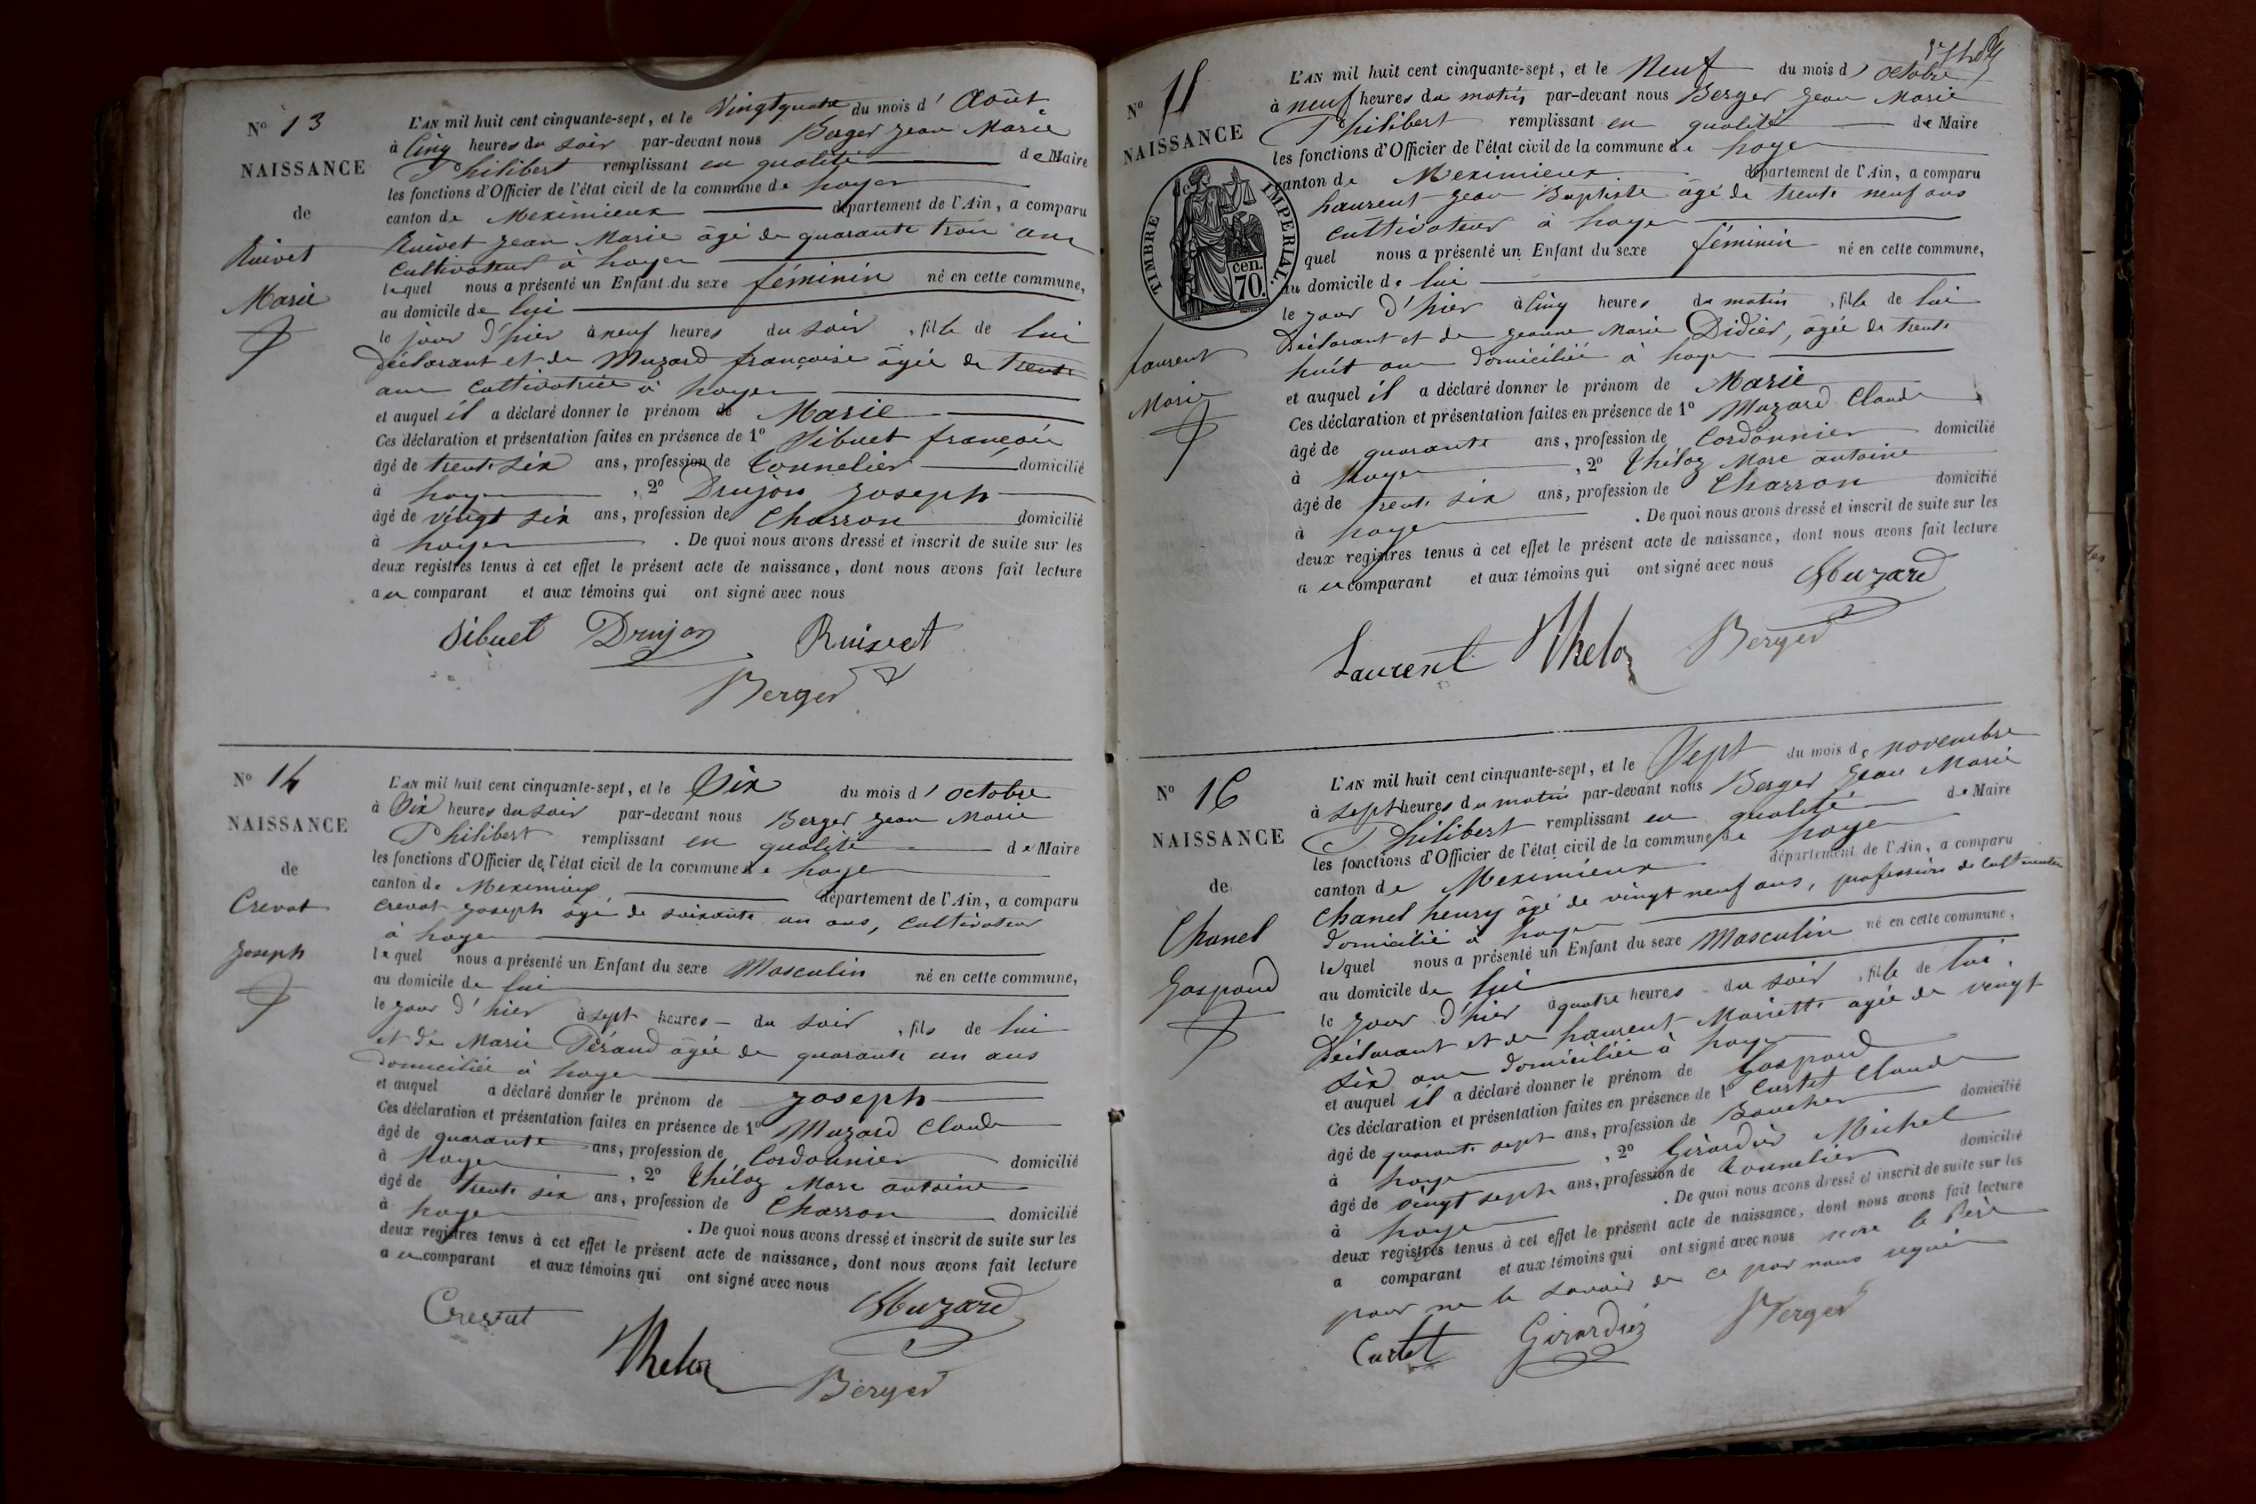 N° 13
NAISSANCE
de
Ruivet
Marie
L'AN mil huit cent cinquante-sept, et le Vingtquatre du mois d' Août
à Cinq heures du soir par-devant nous Berger Jean Marie
Philibert remplissant en qualité de Maire
les fonctions d'Officier de l'état civil de la commune de Loyes
canton de Meximieux département de l'Ain, a comparu
Ruivet Jean Marie âgé de quarante trois ans
Cultivateur à Loyes
lequel nous a présenté un Enfant du sexe féminin né en cette commune,
au domicile de lui
le jour d'hier à neuf heures du soir, fille de lui
déclarant et de Muzard françoise âgée de trente
ans Cultivatrice à Loyes
et auquel il a déclaré donner le prénom de Marie
Ces déclaration et présentation faites en présence de 1° Sibuet françois
âgé de trente six ans, profession de Tonnelier domicilié
à Loyes, 2° Drujon Joseph
âgé de vingt six ans, profession de Charron domicilié
à Loyes. De quoi nous avons dressé et inscrit de suite sur les
deux registres tenus à cet effet le présent acte de naissance, dont nous avons fait lecture
au comparant et aux témoins qui ont signé avec nous
Sibuet Drujon Ruivet
Berger
N° 14
NAISSANCE
de
Crevat
Joseph
L'AN mil huit cent cinquante-sept, et le Six du mois d' octobre
à Six heures du soir par-devant nous Berger Jean Marie
Philibert remplissant en qualité de Maire
les fonctions d'Officier de l'état civil de la commune de Loyes
canton de Meximieux département de l'Ain, a comparu
Crevat Joseph âgé de soixante un ans, Cultivateur
à Loyes
lequel nous a présenté un Enfant du sexe Masculin né en cette commune,
au domicile de lui
le jour d'hier à sept heures du soir, fils de lui
et de Marie Péraud âgée de quarante un ans
domiciliée à Loyes
et auquel a déclaré donner le prénom de Joseph
Ces déclaration et présentation faites en présence de 1° Muzard Claude
âgé de quarante ans, profession de Cordonnier domicilié
à Loyes, 2° Théloz Marc antoine
âgé de trente six ans, profession de Charron domicilié
à Loyes. De quoi nous avons dressé et inscrit de suite sur les
deux registres tenus à cet effet le présent acte de naissance, dont nous avons fait lecture
au comparant et aux témoins qui ont signé avec nous
Crevat Muzard
Theloz Berger
N° 15
NAISSANCE
TIMBRE IMPERIAL.
70 cen.
Laurent
Marie
L'AN mil huit cent cinquante-sept, et le Neuf du mois d' octobre
à neuf heures du matin par-devant nous Berger Jean Marie
Philibert remplissant en qualité de Maire
les fonctions d'Officier de l'état civil de la commune de Loyes
canton de Meximieux département de l'Ain, a comparu
Laurent Jean Baptiste âgé de trente neuf ans
cultivateur à Loyes
quel nous a présenté un Enfant du sexe féminin né en cette commune,
au domicile de lui
le jour d'hier à Cinq heures du matin, fille de lui
déclarant et de Jeanne Marie Didier, âgée de trente
huit ans domiciliée à Loyes
et auquel il a déclaré donner le prénom de Marie
Ces déclaration et présentation faites en présence de 1° Muzard Claude
âgé de quarante ans, profession de Cordonnier domicilié
à Loyes, 2° Théloz Marc antoine
âgé de trente six ans, profession de Charron domicilié
à Loyes. De quoi nous avons dressé et inscrit de suite sur les
deux registres tenus à cet effet le présent acte de naissance, dont nous avons fait lecture
au comparant et aux témoins qui ont signé avec nous Muzard
Laurent Theloz Berger
N° 16
NAISSANCE
de
Chanel
Gaspard
L'AN mil huit cent cinquante-sept, et le Sept du mois de novembre
à sept heures du matin par-devant nous Berger Jean Marie
Philibert remplissant en qualité de Maire
les fonctions d'Officier de l'état civil de la commune de Loyes
canton de Meximieux département de l'Ain, a comparu
Chanel henry âgé de vingt neuf ans, profession de Cultivateur
domicilié à Loyes
lequel nous a présenté un Enfant du sexe Masculin né en cette commune,
au domicile de lui
le jour d'hier à quatre heures du soir, fils de lui
déclarant et de Laurent Mariette âgée de vingt
six ans domiciliée à Loyes
et auquel il a déclaré donner le prénom de Gaspard
Ces déclaration et présentation faites en présence de 1° Curtet Claude
âgé de quarante sept ans, profession de Boucher domicilié
à Loyes, 2° Girardier Michel
âgé de vingt sept ans, profession de Tonnelier domicilié
à Loyes. De quoi nous avons dressé et inscrit de suite sur les
deux registres tenus à cet effet le présent acte de naissance, dont nous avons fait lecture
a comparant et aux témoins qui ont signé avec nous non le Père
pour ne le savoir de ce par nous requis
Curtet Girardier Berger